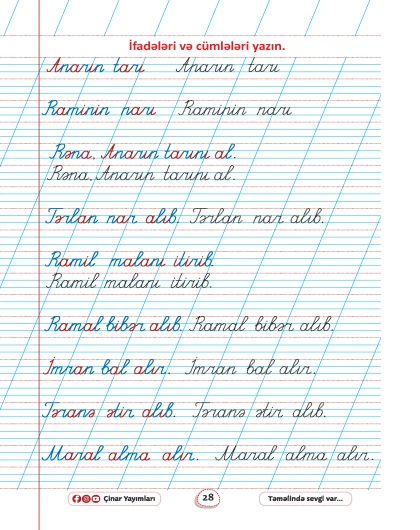 İfadələri və cümlələri yazın.
Anarın tarı Anarın tarı
Raminin narı Raminin narı
Rəna, Anarın tarını al.
Rəna, Anarın tarını al.
Tərlan nar alıb. Tərlan nar alıb.
Ramil malanı itirib.
Ramil malanı itirib.
Ramal bibər alıb. Ramal bibər alıb.
İmran bal alır. İmran bal alır.
Təranə ətir alıb. Təranə ətir alıb.
Maral alma alır. Maral alma alır.
Çinar Yayımları 28 Təməlində sevgi var...